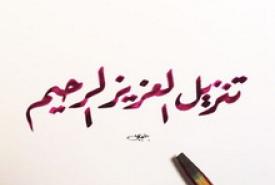 تنزيل العزيز الرحيم